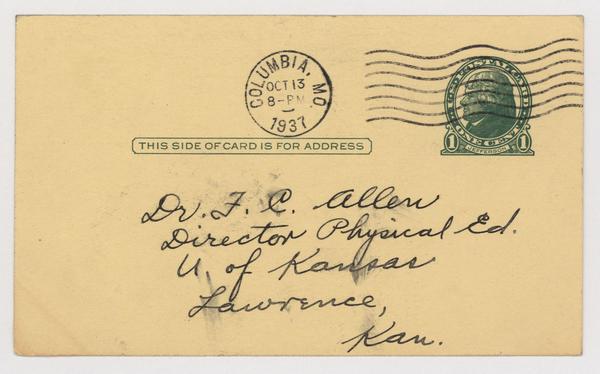 COLUMBIA, MO
OCT 13
8-PM
1937
U.S. POSTAL CARD
1 ONE CENT 1
JEFFERSON
THIS SIDE OF CARD IS FOR ADDRESS
Dr. F. C. Allen
Director Physical Ed.
U. of Kansas
Lawrence,
Kan.